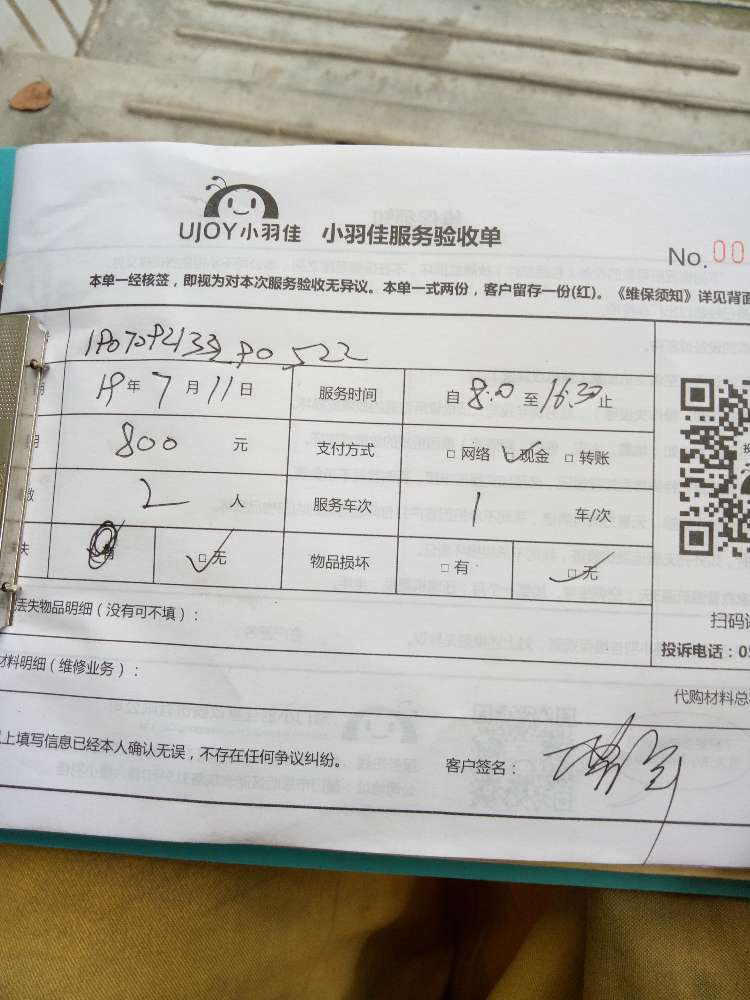 UJOY小羽佳 小羽佳服务验收单
No. 00
本单一经核签，即视为对本次服务验收无异议。本单一式两份，客户留存一份(红)。《维保须知》详见背面
19年7月11日 服务时间 自8:00至16:30止
800元 支付方式 □网络 ✓现金 □转账
数 2人 服务车次 1车/次
失 有 ✓□无 物品损坏 □有 ✓□无
丢失物品明细（没有可不填）：
扫码
投诉电话：05
材料明细（维修业务）：
代购材料总
以上填写信息已经本人确认无误，不存在任何争议纠纷。
客户签名：